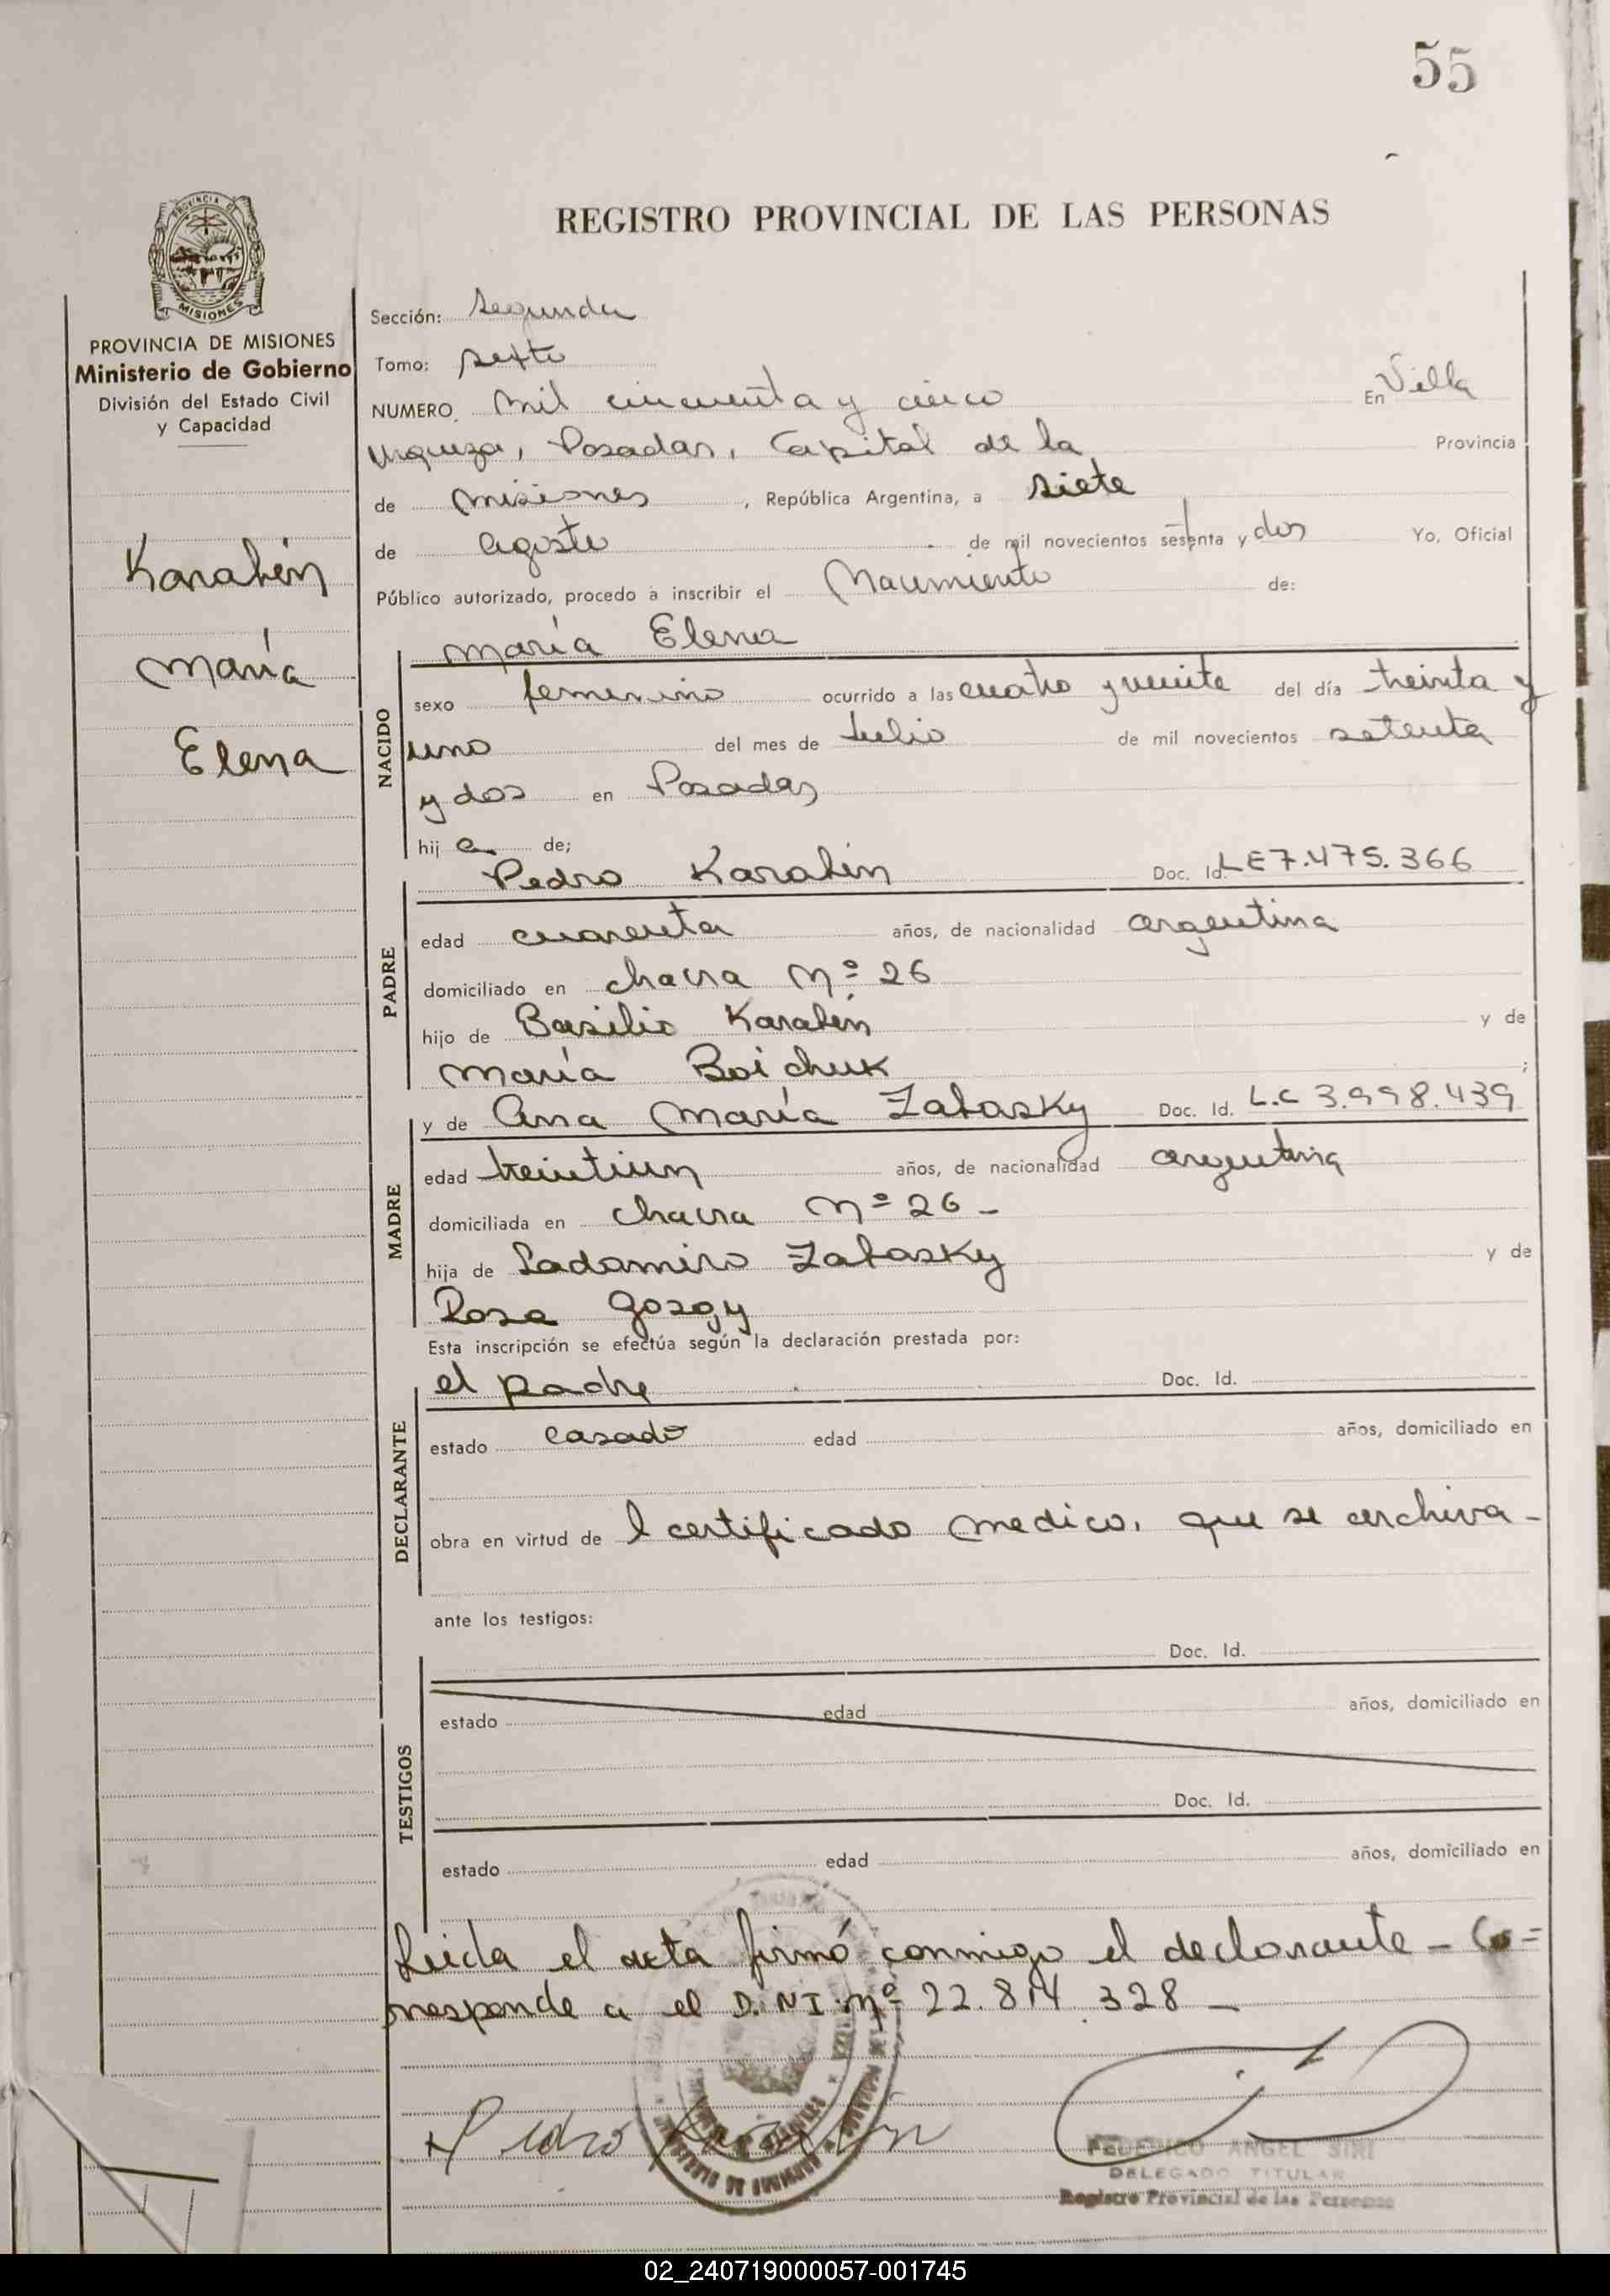 55
REGISTRO PROVINCIAL DE LAS PERSONAS
PROVINCIA DE MISIONES
MISIONES
PROVINCIA DE MISIONES
Ministerio de Gobierno
División del Estado Civil
y Capacidad
Karabín
María
Elena
Sección: Segunda
Tomo: sexto
NUMERO mil cincuenta y cinco En Villa
Urquiza, Posadas, Capital de la Provincia
de Misiones, República Argentina, a siete
de Agosto de mil novecientos setenta y dos Yo, Oficial
Público autorizado, procedo a inscribir el Nacimiento de:
María Elena
NACIDO
sexo femenino ocurrido a las cuatro y veinte del día treinta y
uno del mes de Julio de mil novecientos setenta
y dos en Posadas
hija de;
Pedro Karabin Doc. Id. LE 7.475.366
PADRE
edad cuarenta años, de nacionalidad argentina
domiciliado en chacra Nº 26
hijo de Basilio Karabín y de
María Boichuk ;
y de Ana María Zabasky Doc. Id. L.C 3.998.439
MADRE
edad treintiun años, de nacionalidad argentina
domiciliada en chacra Nº 26 -
hija de Ladomiro Zabasky y de
Rosa Gozgy
Esta inscripción se efectúa según la declaración prestada por:
el padre Doc. Id.
DECLARANTE
estado casado edad años, domiciliado en
obra en virtud de l certificado medico, que se archiva -
ante los testigos:
Doc. Id.
TESTIGOS
estado edad años, domiciliado en
Doc. Id.
estado edad años, domiciliado en
Leida el acta firmó conmigo el declarante - Co=
rresponde a el D.NI. Nº 22.814.328 -
Pedro Karabin
FEDERICO ANGEL SIRI
DELEGADO TITULAR
Registro Provincial de las Personas
02_240719000057-001745